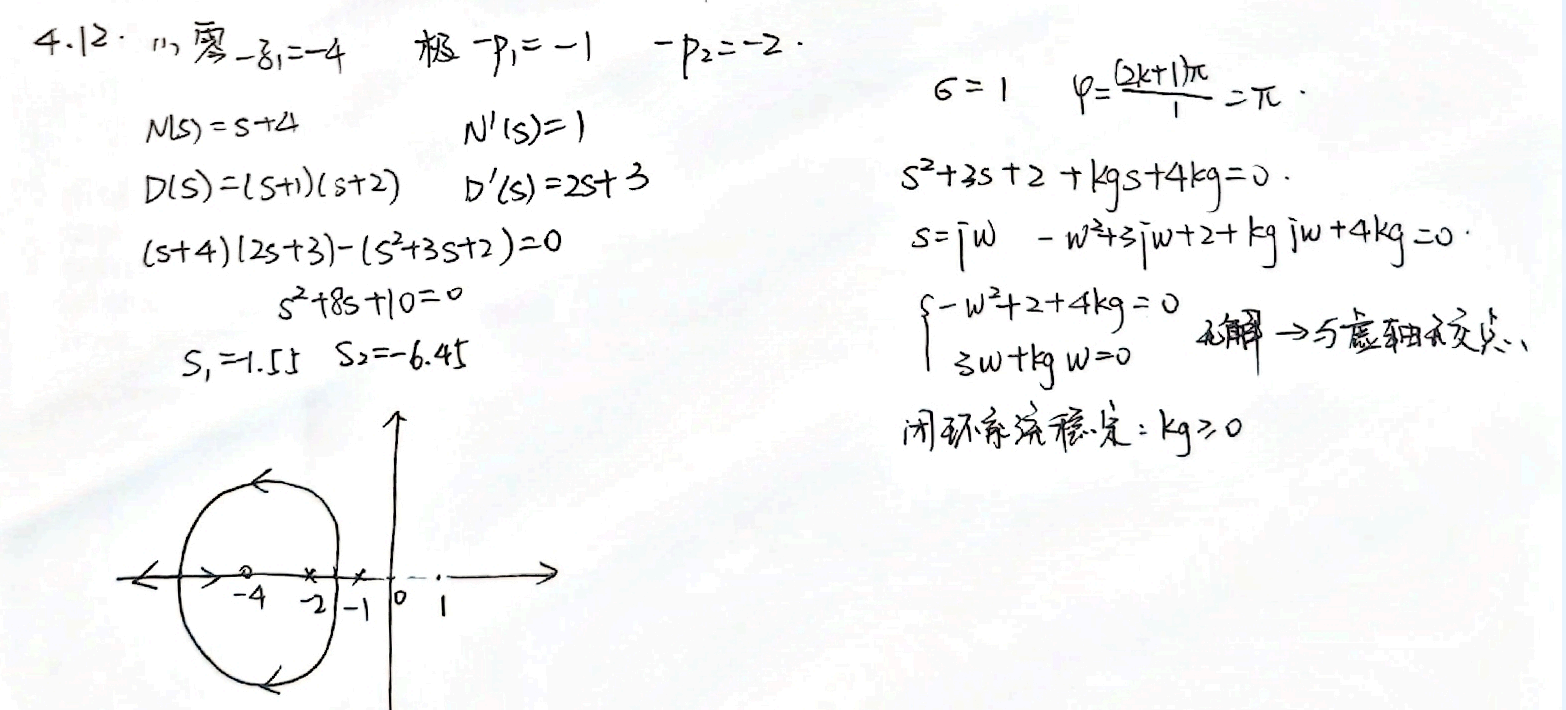 4.12. (1) 零 -z₁=-4 极 -p₁=-1 -p₂=-2.
N(s)=s+4 N'(s)=1
D(s)=(s+1)(s+2) D'(s)=2s+3
(s+4)(2s+3)-(s²+3s+2)=0
s²+8s+10=0
s₁=-1.55 s₂=-6.45
-4 -2 -1 0 1
σ=1 φ=(2k+1)π/1=π.
s²+3s+2+kgs+4kg=0.
s=jw -w²+3jw+2+kgjw+4kg=0.
{-w²+2+4kg=0
3w+kgw=0 无解→与虚轴无交点
闭环系统稳定:kg≥0